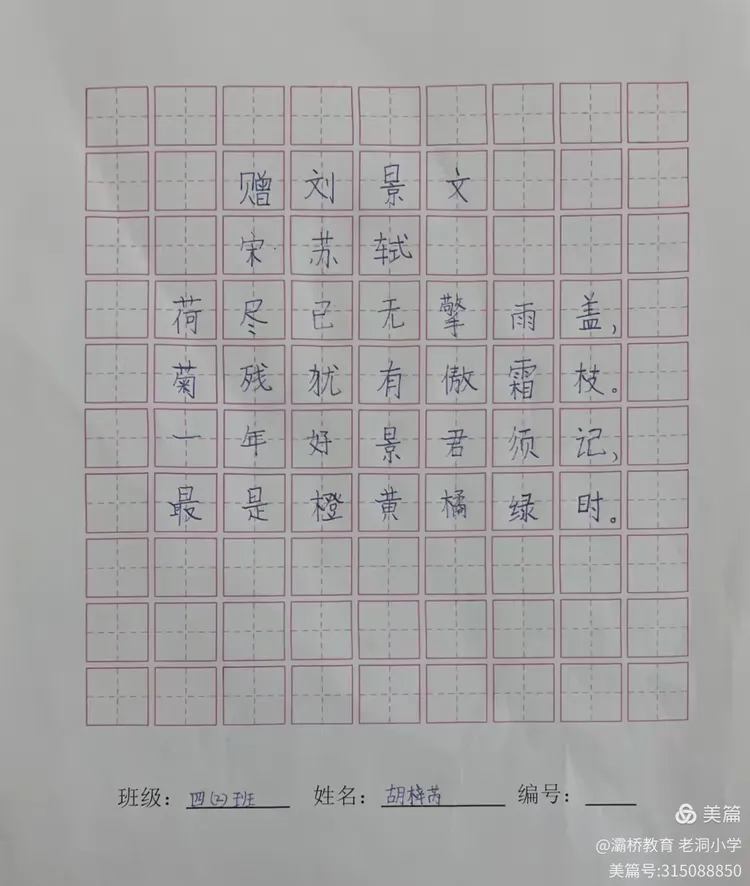 赠刘景文
宋·苏轼
荷尽已无擎雨盖,
菊残犹有傲霜枝。
一年好景君须记,
最是橙黄橘绿时。
班级：四(2)班 姓名：胡梓芮 编号：
美篇
@灞桥教育 老洞小学
美篇号:315088850